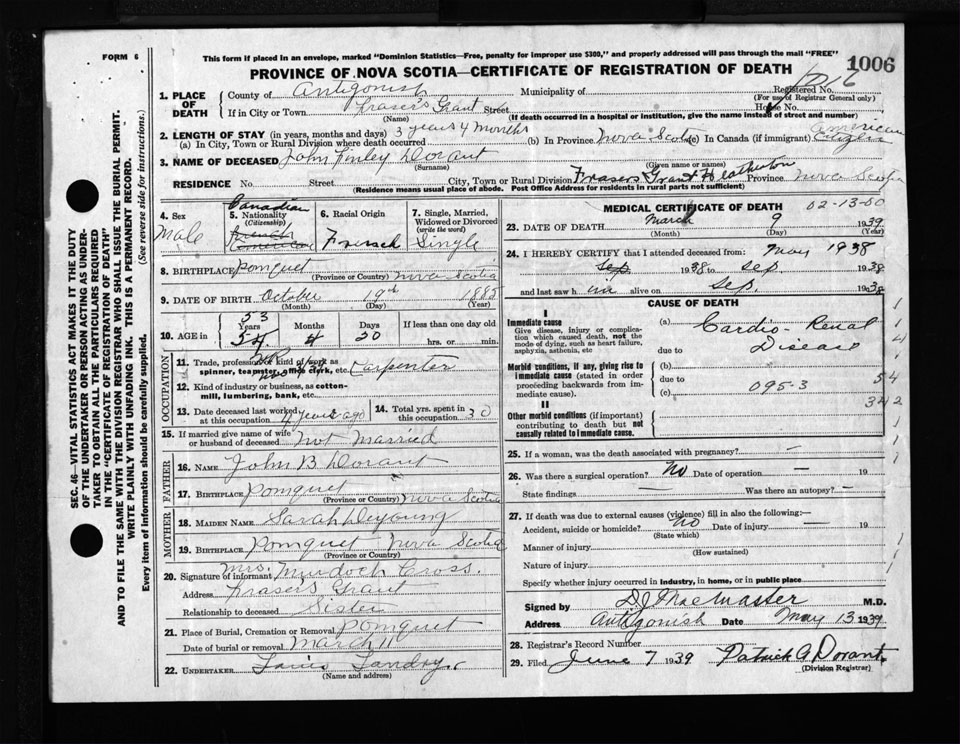 FORM 6
This form if placed in an envelope, marked "Dominion Statistics—Free, penalty for improper use $300," and properly addressed will pass through the mail "FREE"
PROVINCE OF NOVA SCOTIA—CERTIFICATE OF REGISTRATION OF DEATH
1006
SEC. 46—VITAL STATISTICS ACT MAKES IT THE DUTY OF THE UNDERTAKER OR PERSON ACTING AS UNDERTAKER TO OBTAIN ALL THE PARTICULARS REQUIRED IN THE "CERTIFICATE OF REGISTRATION OF DEATH" AND TO FILE THE SAME WITH THE DIVISION REGISTRAR WHO SHALL ISSUE THE BURIAL PERMIT.
WRITE PLAINLY WITH UNFADING INK. THIS IS A PERMANENT RECORD.
Every item of information should be carefully supplied. (See reverse side for instructions.)
1. PLACE OF DEATH
County of Antigonish Municipality of Registered No.
(For use of Registrar General only)
If in City or Town Frasers Grant Street House No.
(Name) (If death occurred in a hospital or institution, give the name instead of street and number)
2. LENGTH OF STAY (in years, months and days) 3 years 4 months
(a) In City, Town or Rural Division where death occurred (b) In Province Nova Scotia (c) In Canada (if immigrant) American Citizen
3. NAME OF DECEASED John Finley Dorant
(Surname) (Given name or names)
RESIDENCE No. Street City, Town or Rural Division Frasers Grant Heatherton Province Nova Scotia
(Residence means usual place of abode. Post Office Address for residents in rural parts not sufficient)
4. Sex Male
5. Nationality (Citizenship) Canadian French American
6. Racial Origin French
7. Single, Married, Widowed or Divorced (write the word) Single
8. BIRTHPLACE Pomquet Nova Scotia
(Province or Country)
9. DATE OF BIRTH October 19th 1885
(Month) (Day) (Year)
10. AGE in 53 54 Years 4 Months 20 Days If less than one day hrs. or min.
OCCUPATION
11. Trade, profession or kind of work as spinner, teamster, office clerk, etc. Carpenter
12. Kind of industry or business, as cotton-mill, lumbering, bank, etc.
13. Date deceased last worked at this occupation 4 years ago 14. Total yrs. spent in this occupation 30
15. If married give name of wife or husband of deceased Not Married
FATHER
16. NAME John B. Dorant
17. BIRTHPLACE Pomquet Nova Scotia
(Province or Country)
MOTHER
18. MAIDEN NAME Sarah Deyoung
19. BIRTHPLACE Pomquet Nova Scotia
(Province or Country)
20. Signature of informant Mrs. Murdoch Cross.
Address Frasers Grant
Relationship to deceased Sister
21. Place of Burial, Cremation or Removal Pomquet
Date of burial or removal March 11
22. UNDERTAKER Louis Landry
(Name and address)
MEDICAL CERTIFICATE OF DEATH 02-13-50
23. DATE OF DEATH March 9 1939
(Month) (Day) (Year)
24. I HEREBY CERTIFY that I attended deceased from: May 1938
Sep 1938 to Sep 1938
and last saw him alive on Sep. 1938
CAUSE OF DEATH
I
Immediate cause
Give disease, injury or complication which caused death, not the mode of dying, such as heart failure, asphyxia, asthenia, etc
(a) Cardio-Renal Disease
due to
Morbid conditions, if any, giving rise to immediate cause (stated in order proceeding backwards from immediate cause).
(b)
due to 095-3
(c)
54
342
II
Other morbid conditions (if important) contributing to death but not causally related to immediate cause.
25. If a woman, was the death associated with pregnancy? —
26. Was there a surgical operation? No Date of operation — 19
State findings — Was there an autopsy? —
27. If death was due to external causes (violence) fill in also the following:—
Accident, suicide or homicide? no Date of injury — 19
(State which)
Manner of injury
(How sustained)
Nature of injury
Specify whether injury occurred in industry, in home, or in public place
Signed by D J MacMaster M.D.
Address Antigonish Date May 13 1939
28. Registrar's Record Number
29. Filed June 7 1939 Patrick A Dorant
(Division Registrar)